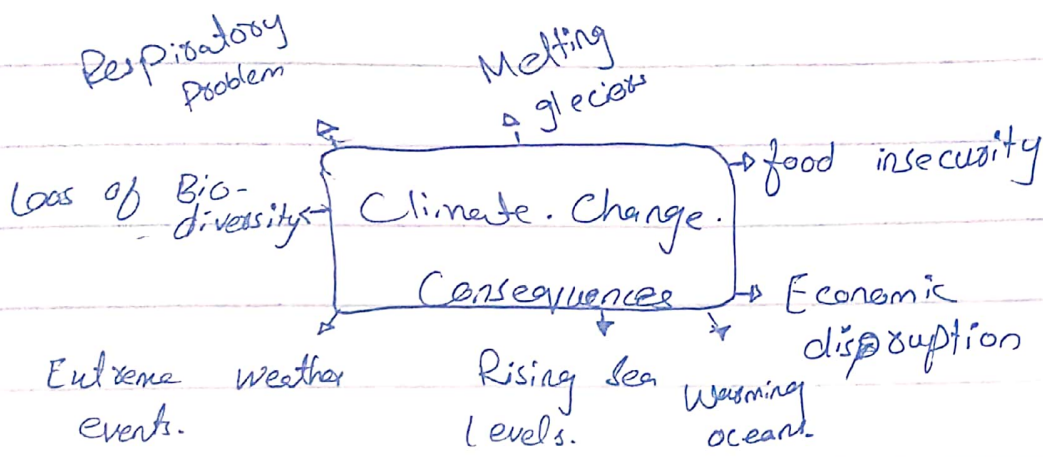 Respiratory
Problem
Melting
gleciers
food insecurity
Loas of Bio-
diversity
Climate. Change.
Consequences
Economic
disruption
Extreme weather
events.
Rising Sea
Levels.
Warming
oceans.